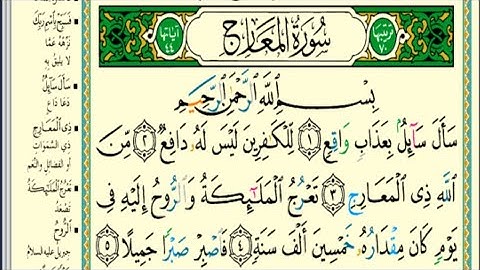 ترتيبها ٧٠
سُورَةُ المَعَارِجِ
آياتها ٤٤
بِسْمِ اللَّهِ الرَّحْمَٰنِ الرَّحِيمِ
سَأَلَ سَآئِلٌۢ بِعَذَابٍ وَاقِعٍ ١ لِّلْكَٰفِرِينَ لَيْسَ لَهُۥ دَافِعٌ ٢ مِّنَ
اللَّهِ ذِى الْمَعَارِجِ ٣ تَعْرُجُ الْمَلَٰٓئِكَةُ وَالرُّوحُ إِلَيْهِ فِى
يَوْمٍ كَانَ مِقْدَارُهُۥ خَمْسِينَ أَلْفَ سَنَةٍ ٤ فَاصْبِرْ صَبْرًا جَمِيلًا ٥
فَسَبِّحْ بِاسْمِ رَبِّكَ
نَزِّهْهُ عَمَّا
لا يَليقُ بِهِ
سَأَلَ سَآئِلٌ
دَعَا دَاعٍ
ذِى الْمَعَارِجِ
ذي السَّمَوَاتِ
أو الفضائل والنِّعَم
تَعْرُجُ الْمَلَٰٓئِكَةُ
تَصْعَدُ
الرُّوحُ
جبريل عليه السلام